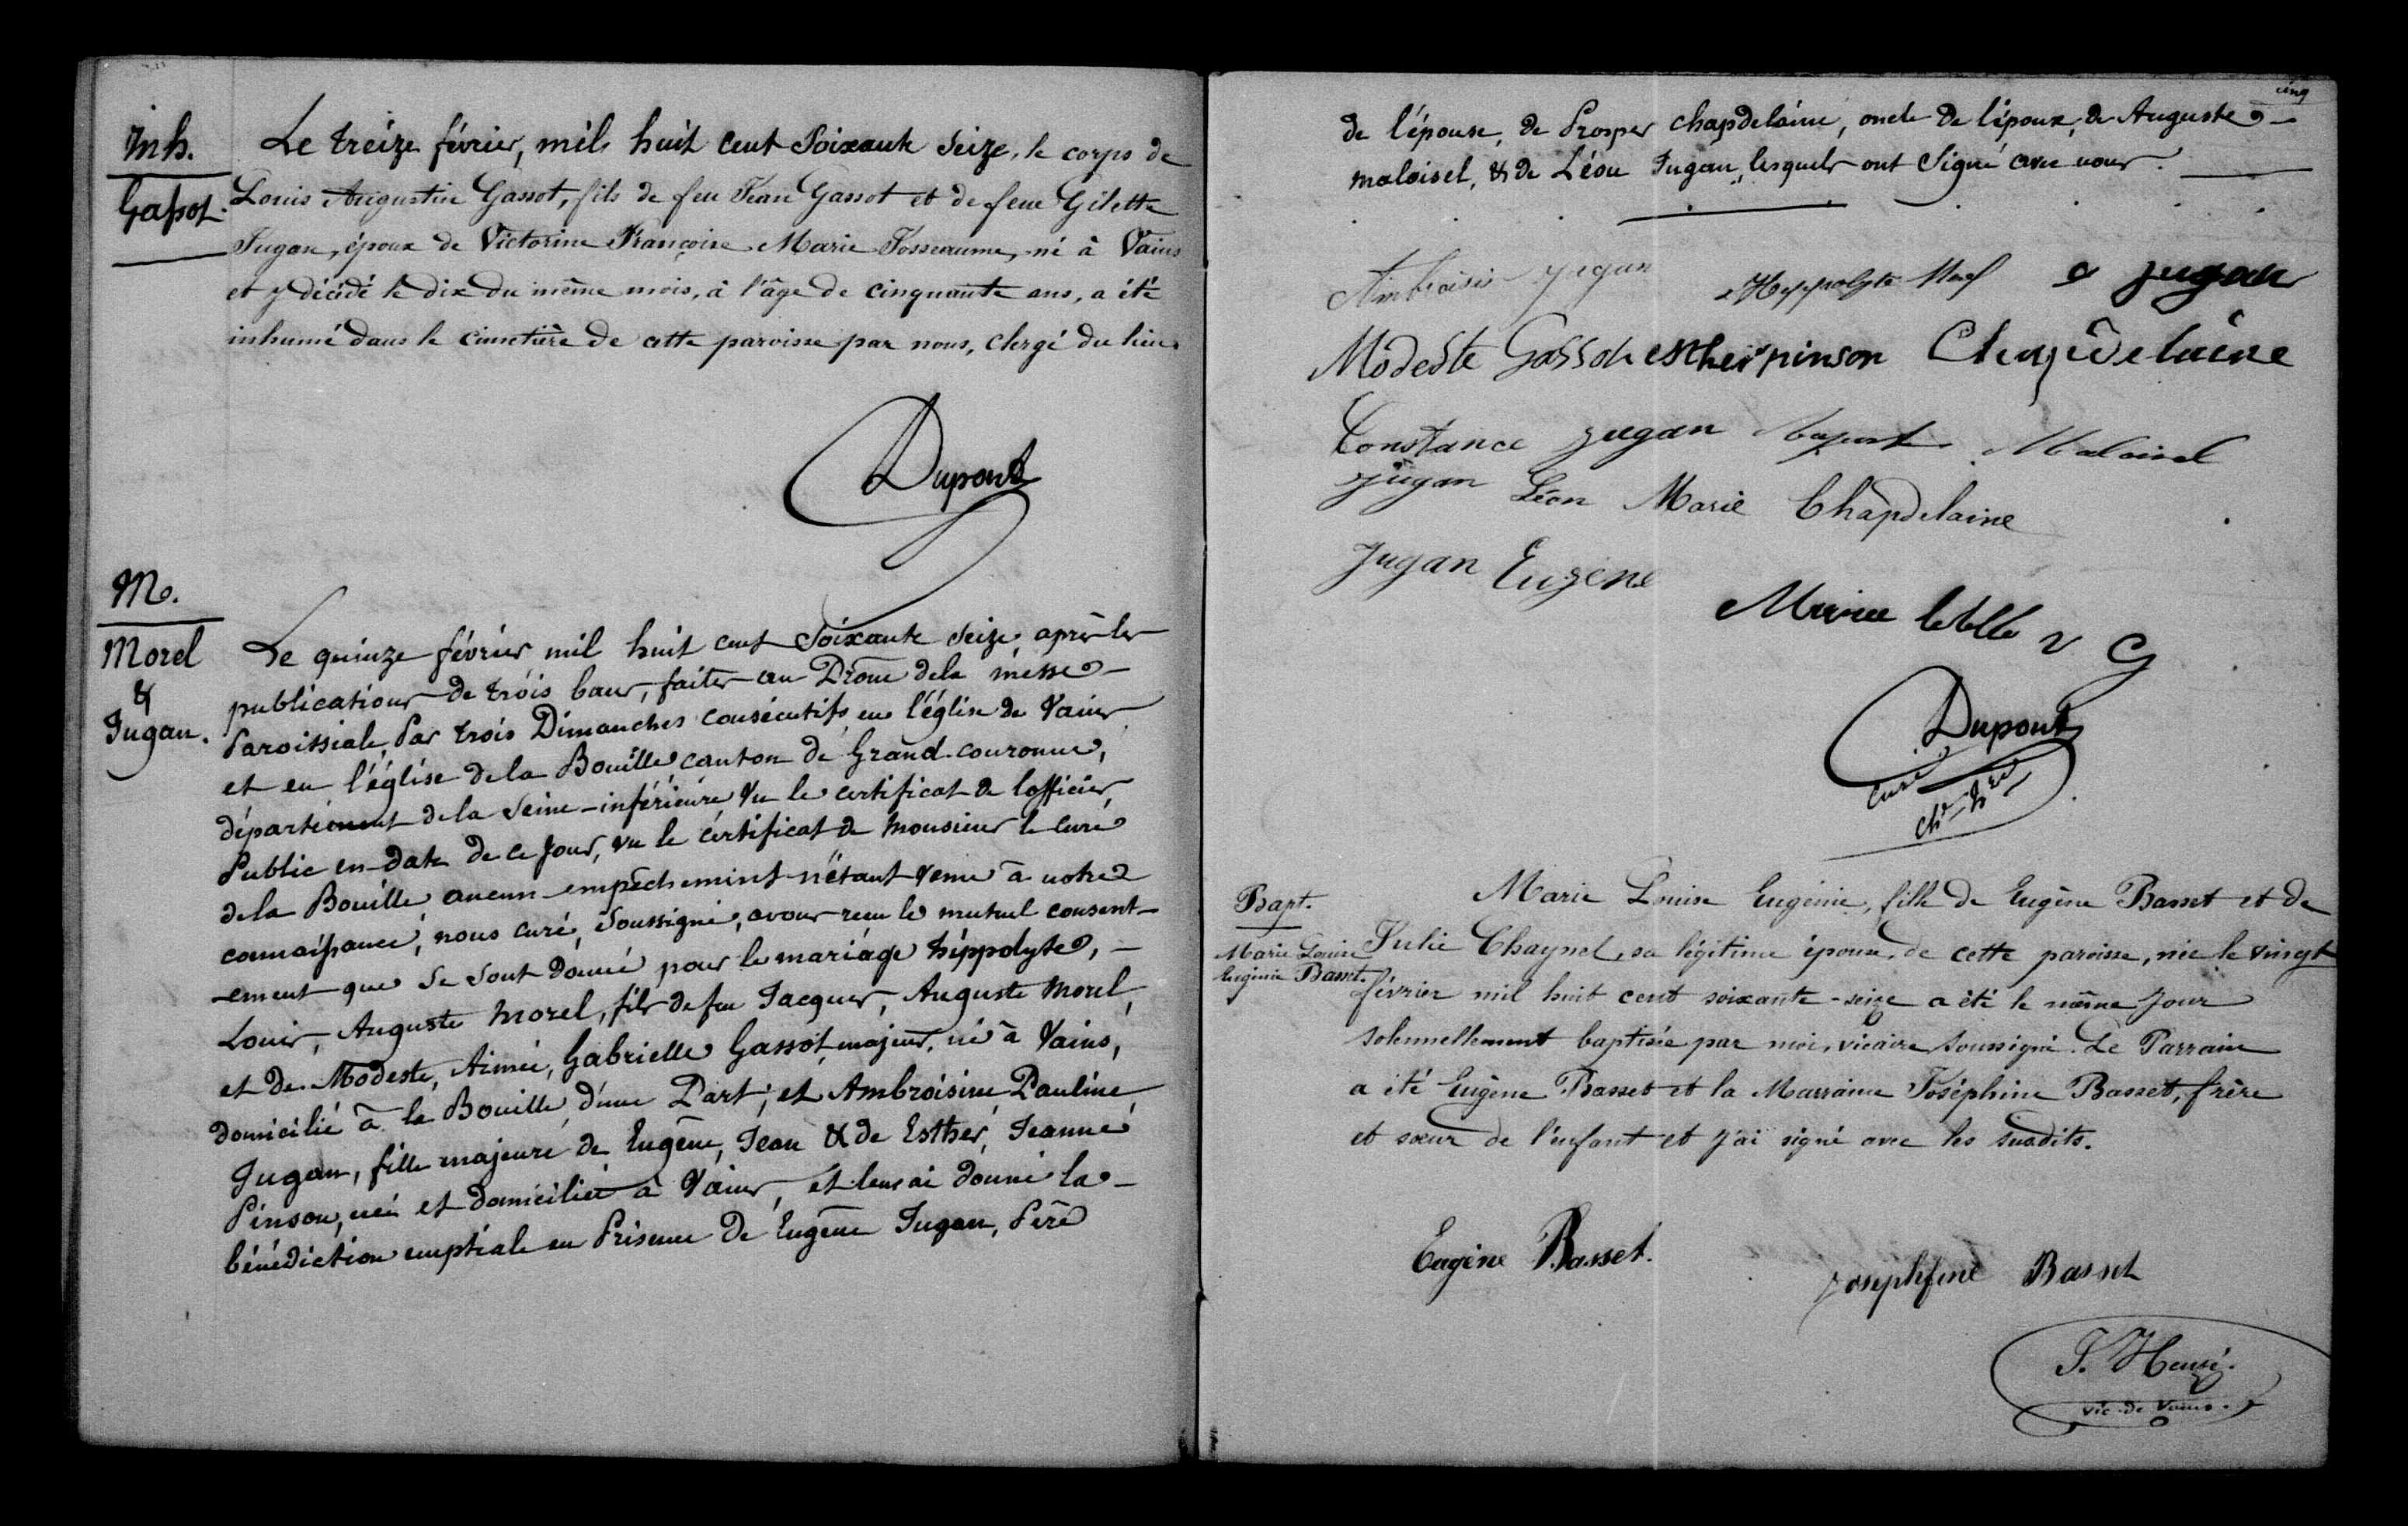 Inh.
Gassot.
Le treize février, mil huit cent Soixante Seize, le corps de
Louis Augustin Gassot, fils de feu Jean Gassot et de feue Gilette
Jugan, époux de Victorine Françoise Marie Josseaume, né à Vains
et y décédé le dix du même mois, à l'âge de cinquante ans, a été
inhumé dans le cimetière de cette paroisse par nous, clergé du lieu.
Dupont
M.
Morel
&
Jugan.
Le quinze février mil huit cent Soixante Seize après les
publications de trois bans, faites au Prône de la messe
Paroissiale, Par trois Dimanches consécutifs en l'église de Vains
et en l'église de la Bouille canton de Grand-couronne,
département de la Seine-inférieure Vu le certificat de l'officier
Public en date de ce jour, vu le certificat de Monsieur le Curé
de la Bouille aucun empêchement n'étant venu à notre
connaissance, nous curé, Soussigné, avons reçu le mutuel consent-
-ement que Se Sont donné pour le mariage hippolyte,
Louis, Auguste Morel, fils de feu Jacques, Auguste Morel,
et de Modeste, Aimée, Gabrielle Gassot, majeur, né à Vains,
domicilié à la Bouille d'une Part; et Ambroisine Pauline
Jugan, fille majeure de Eugène, Jean & de Esther, Jeanne
Pinson, née et domiciliée à Vains, et leur ai donné la
bénédiction nuptiale en Présence de Eugène Jugan, Père
cinq
de l'épouse, de Prosper Chapdelaine, oncle de l'époux, de Auguste
maloisel, & de Léon Jugan, lesquels ont Signé avec nous.
Ambroisine jugan Hyppolyte Morel e jugan
Modeste Gassot esther pinson Chapdelaine
Constance jugan Maloisel
jugan Léon Marie Chapdelaine
Jugan Eugene
Marie
Dupont
curé
Bapt.
Marie Louise
Eugénie Basset.
Marie Louise Eugénie, fille de Eugène Basset et de
Julie Chaynel, sa légitime épouse, de cette paroisse, née le vingt
février mil huit cent soixante-seize a été le même jour
solennellement baptisée par moi, vicaire soussigné. Le Parrain
a été Eugène Basset et la Marraine Joséphine Basset, frère
et sœur de l'enfant et j'ai signé avec les susdits.
Eugène Basset.
Josephine Basset
vic. de Vains.